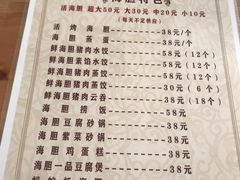 海胆特色
活海胆 超大50元 大30元 中20元 小10元
(每天不定供应)
活烤海胆——38元/个
海胆蒸蛋——38元/个
鲜海胆猪肉水饺——58元(12个)
鲜海胆素馅水饺——58元(12个)
鲜海胆猪肉蒸饺——30元(6个)
鲜海胆猪肉云吞——38元(18个)
海胆捞饭——58元
海胆豆腐砂锅——58元
海胆紫菜砂锅——38元
海胆鸡蛋糕——38元
海胆一品豆腐煲——58元